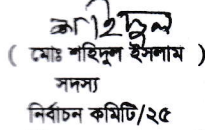 ( মোঃ শহিদুল ইসলাম )
সদস্য
নির্বাচন কমিটি/২৫